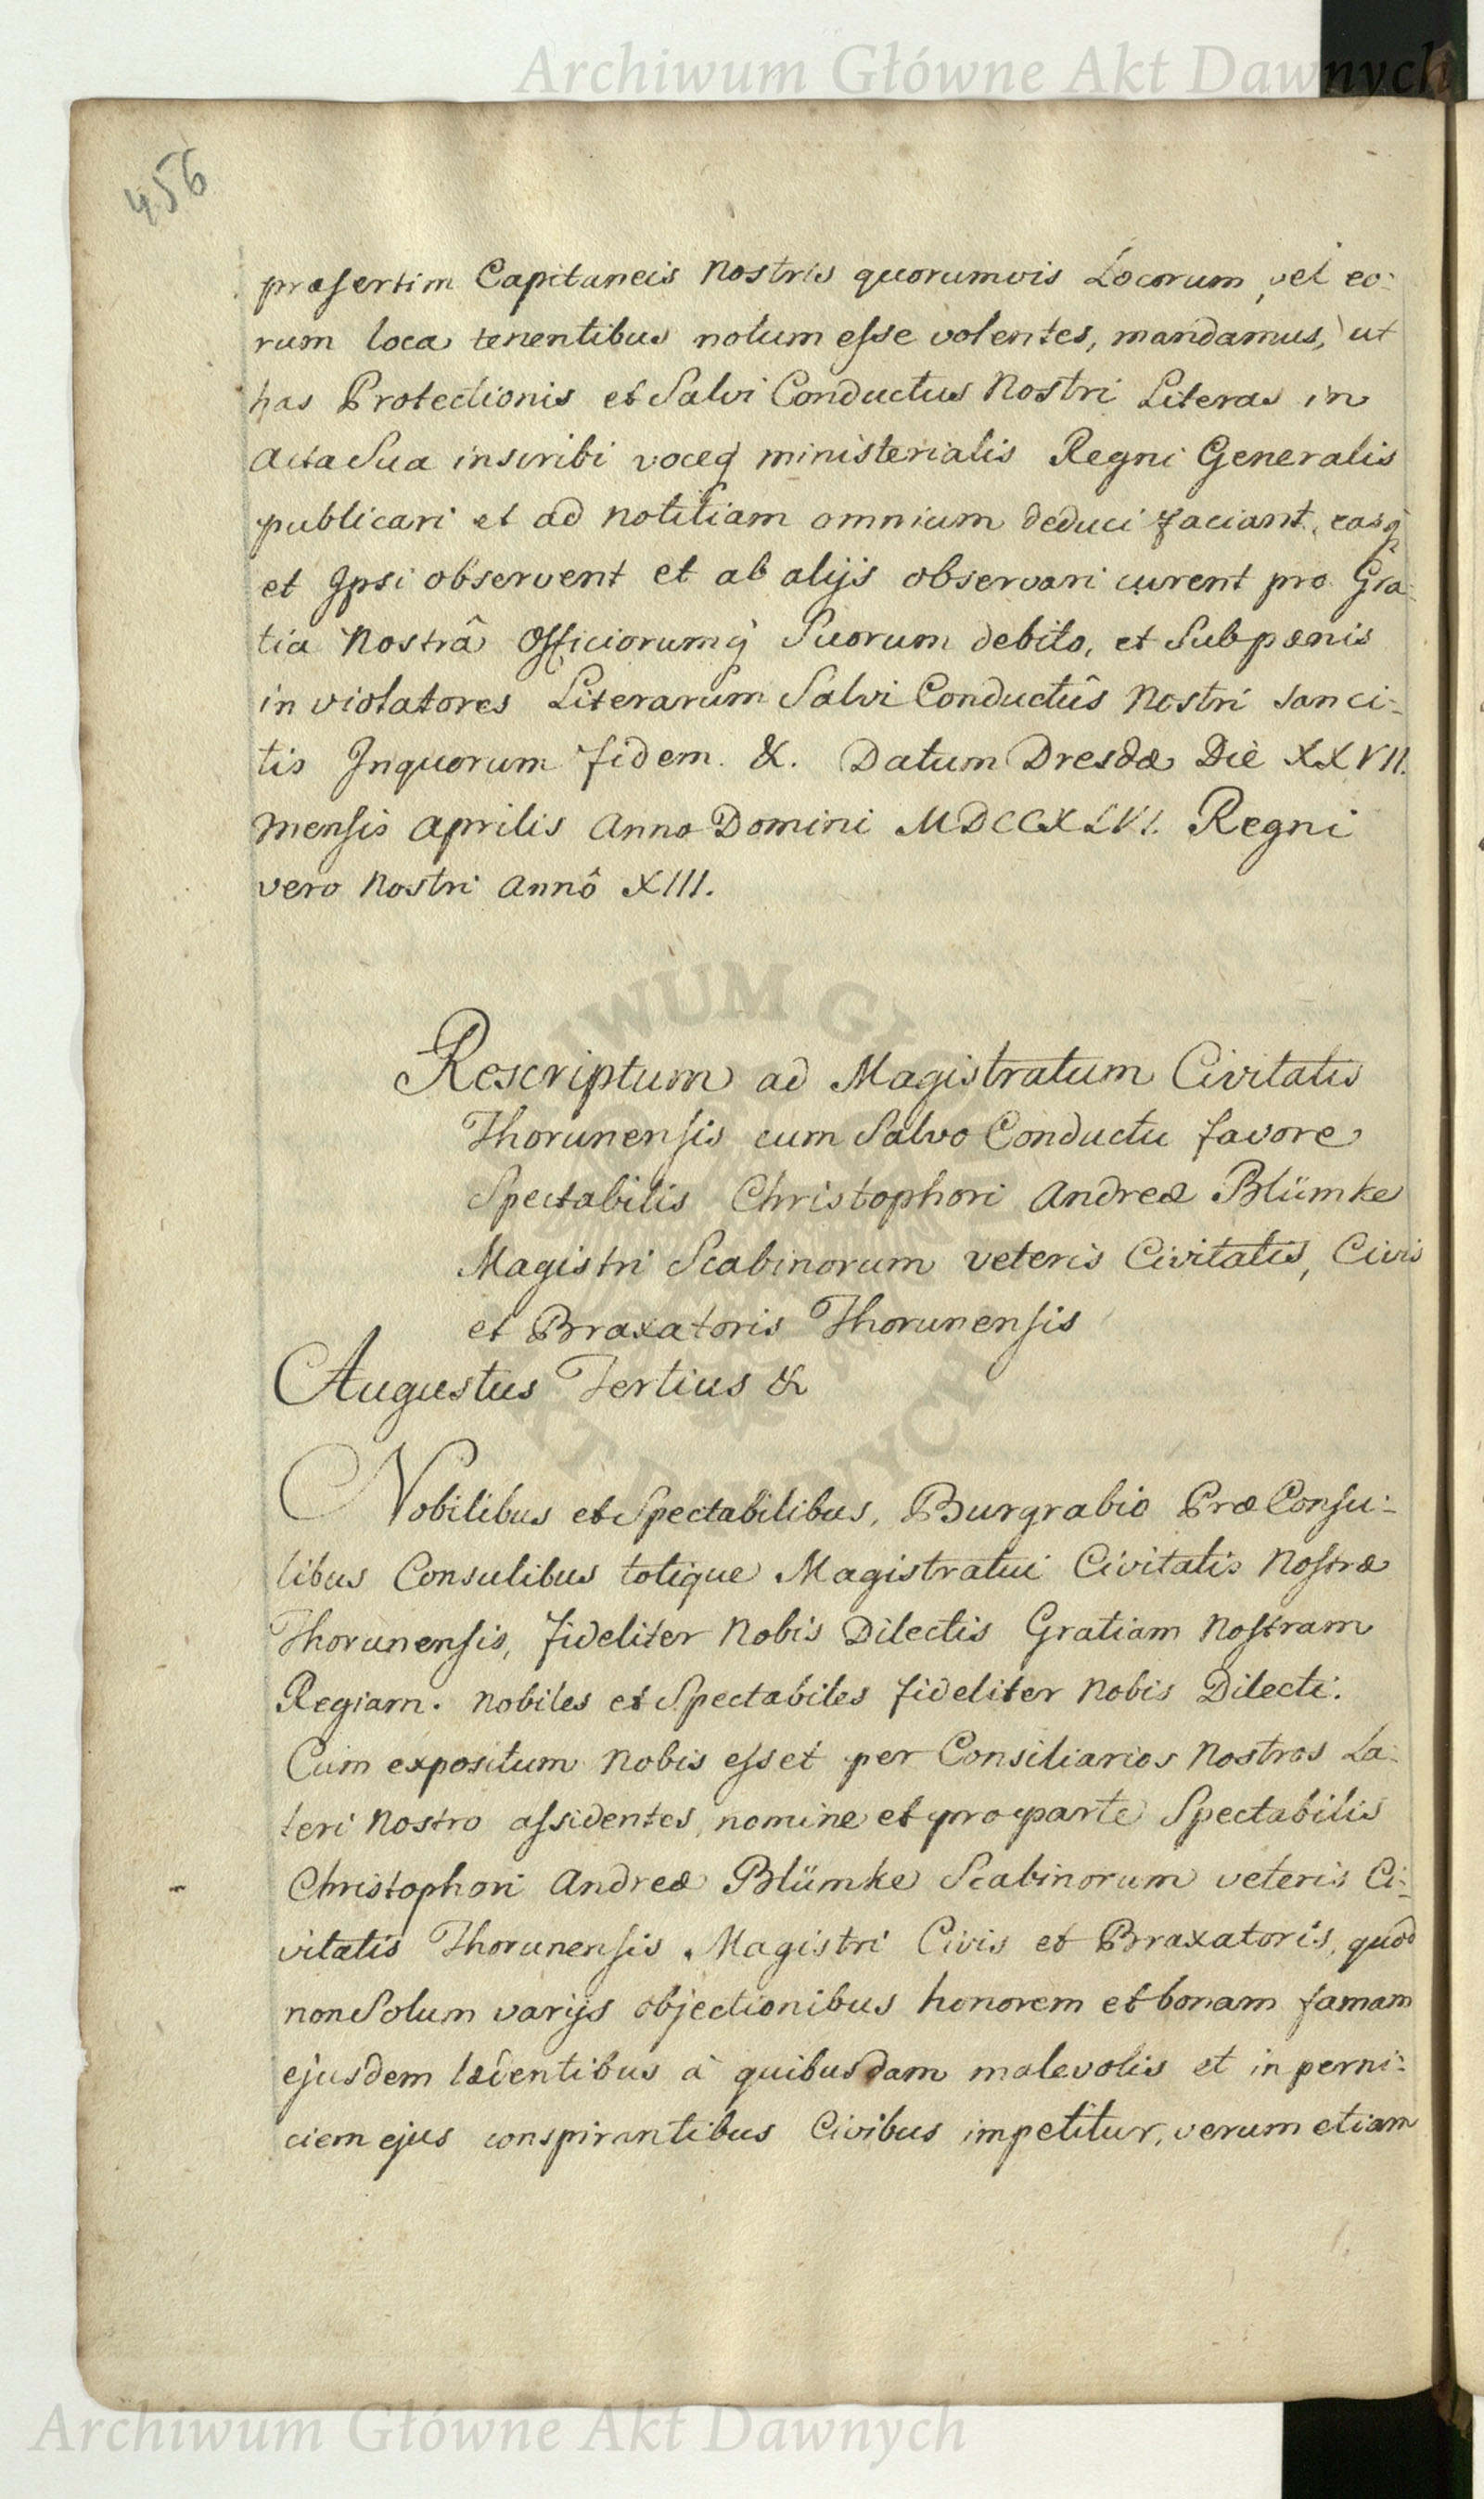 Archiwum Główne Akt Dawnych
456
præsertim Capitaneis Nostris quorumvis Locorum, vel eo-
rum loca tenentibus notum esse volentes, mandamus, ut
has Protectionis et Salvi Conductus Nostri Literas in
Acta Sua inscribi voceq ministerialis Regni Generalis
publicari et ad notitiam omnium deduci faciant, easq
et Ipsi observent et ab alijs observari curent pro Gra-
tia Nostrâ Officiorumq Suorum debito, et Sub pænis
in violatores Literarum Salvi Conductûs Nostri sanci-
tis Inquorum fidem. &. Datum Dresdæ Die XXVII.
Mensis Aprilis Anno Domini MDCCXLVI. Regni
vero Nostri Annô XIII.
Rescriptum ad Magistratum Civitatis
Thorunensis cum Salvo Conductu favore
Spectabilis Christophori Andreæ Blümke
Magistri Scabinorum veteris Civitatis, Civis
et Braxatoris Thorunensis
Augustus Tertius &
Nobilibus et Spectabilibus, Burgrabio PræConsu-
libus Consulibus totique Magistratui Civitatis Nostræ
Thorunensis, fideliter Nobis Dilectis Gratiam Nostram
Regiam. Nobiles et Spectabiles fideliter Nobis Dilecti.
Cum expositum Nobis esset per Consiliarios Nostros La-
teri Nostro assidentes, nomine et pro parte Spectabilis
Christophori Andreæ Blümke Scabinorum veteris Ci-
vitatis Thorunensis Magistri Civis et Braxatoris, quod
non Solum varijs objectionibus honorem et bonam famam
ejusdem lædentibus à quibusdam malevolis et in perni-
ciem ejus conspirantibus Civibus impetitur, verum etiam
Archiwum Główne Akt Dawnych